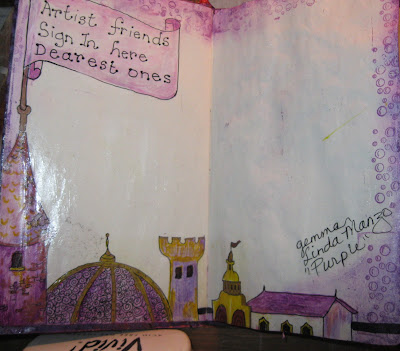 Artist friends
Sign In here
Dearest ones
gemma
Linda Manzo
Purple
Vivid!